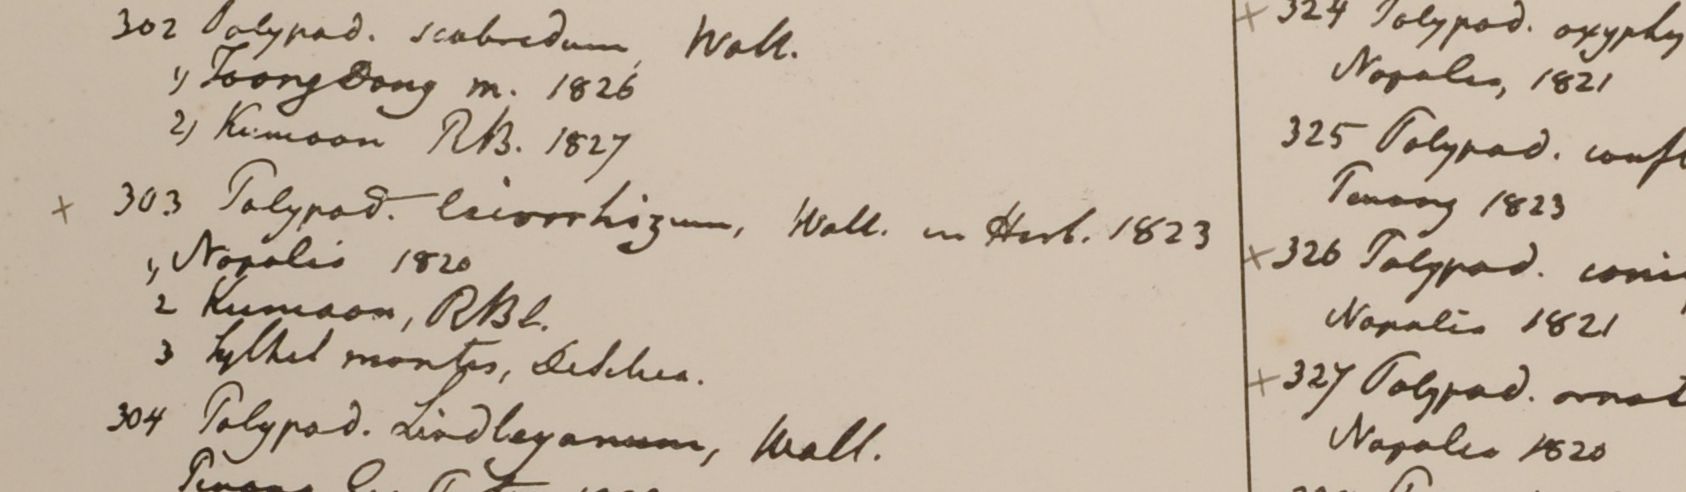 302 Polypod. scabredum, Wall.
1, Toong Dong m. 1826
2, Kumaon RB. 1827
× 303 Polypod. leiorrhizum, Wall. in Herb. 1823
1, Napalia 1820
2 Kumaon, RBl.
3 Sylhet montes, DeSilva.
304 Polypod. Lindleyanum, Wall.
Penang
× 324 Polypod. oxyphy
Napalia, 1821
325 Polypod. confl
Penang 1823
× 326 Polypod. coni
Napalia 1821
× 327 Polypod. ornat
Napalia 1820